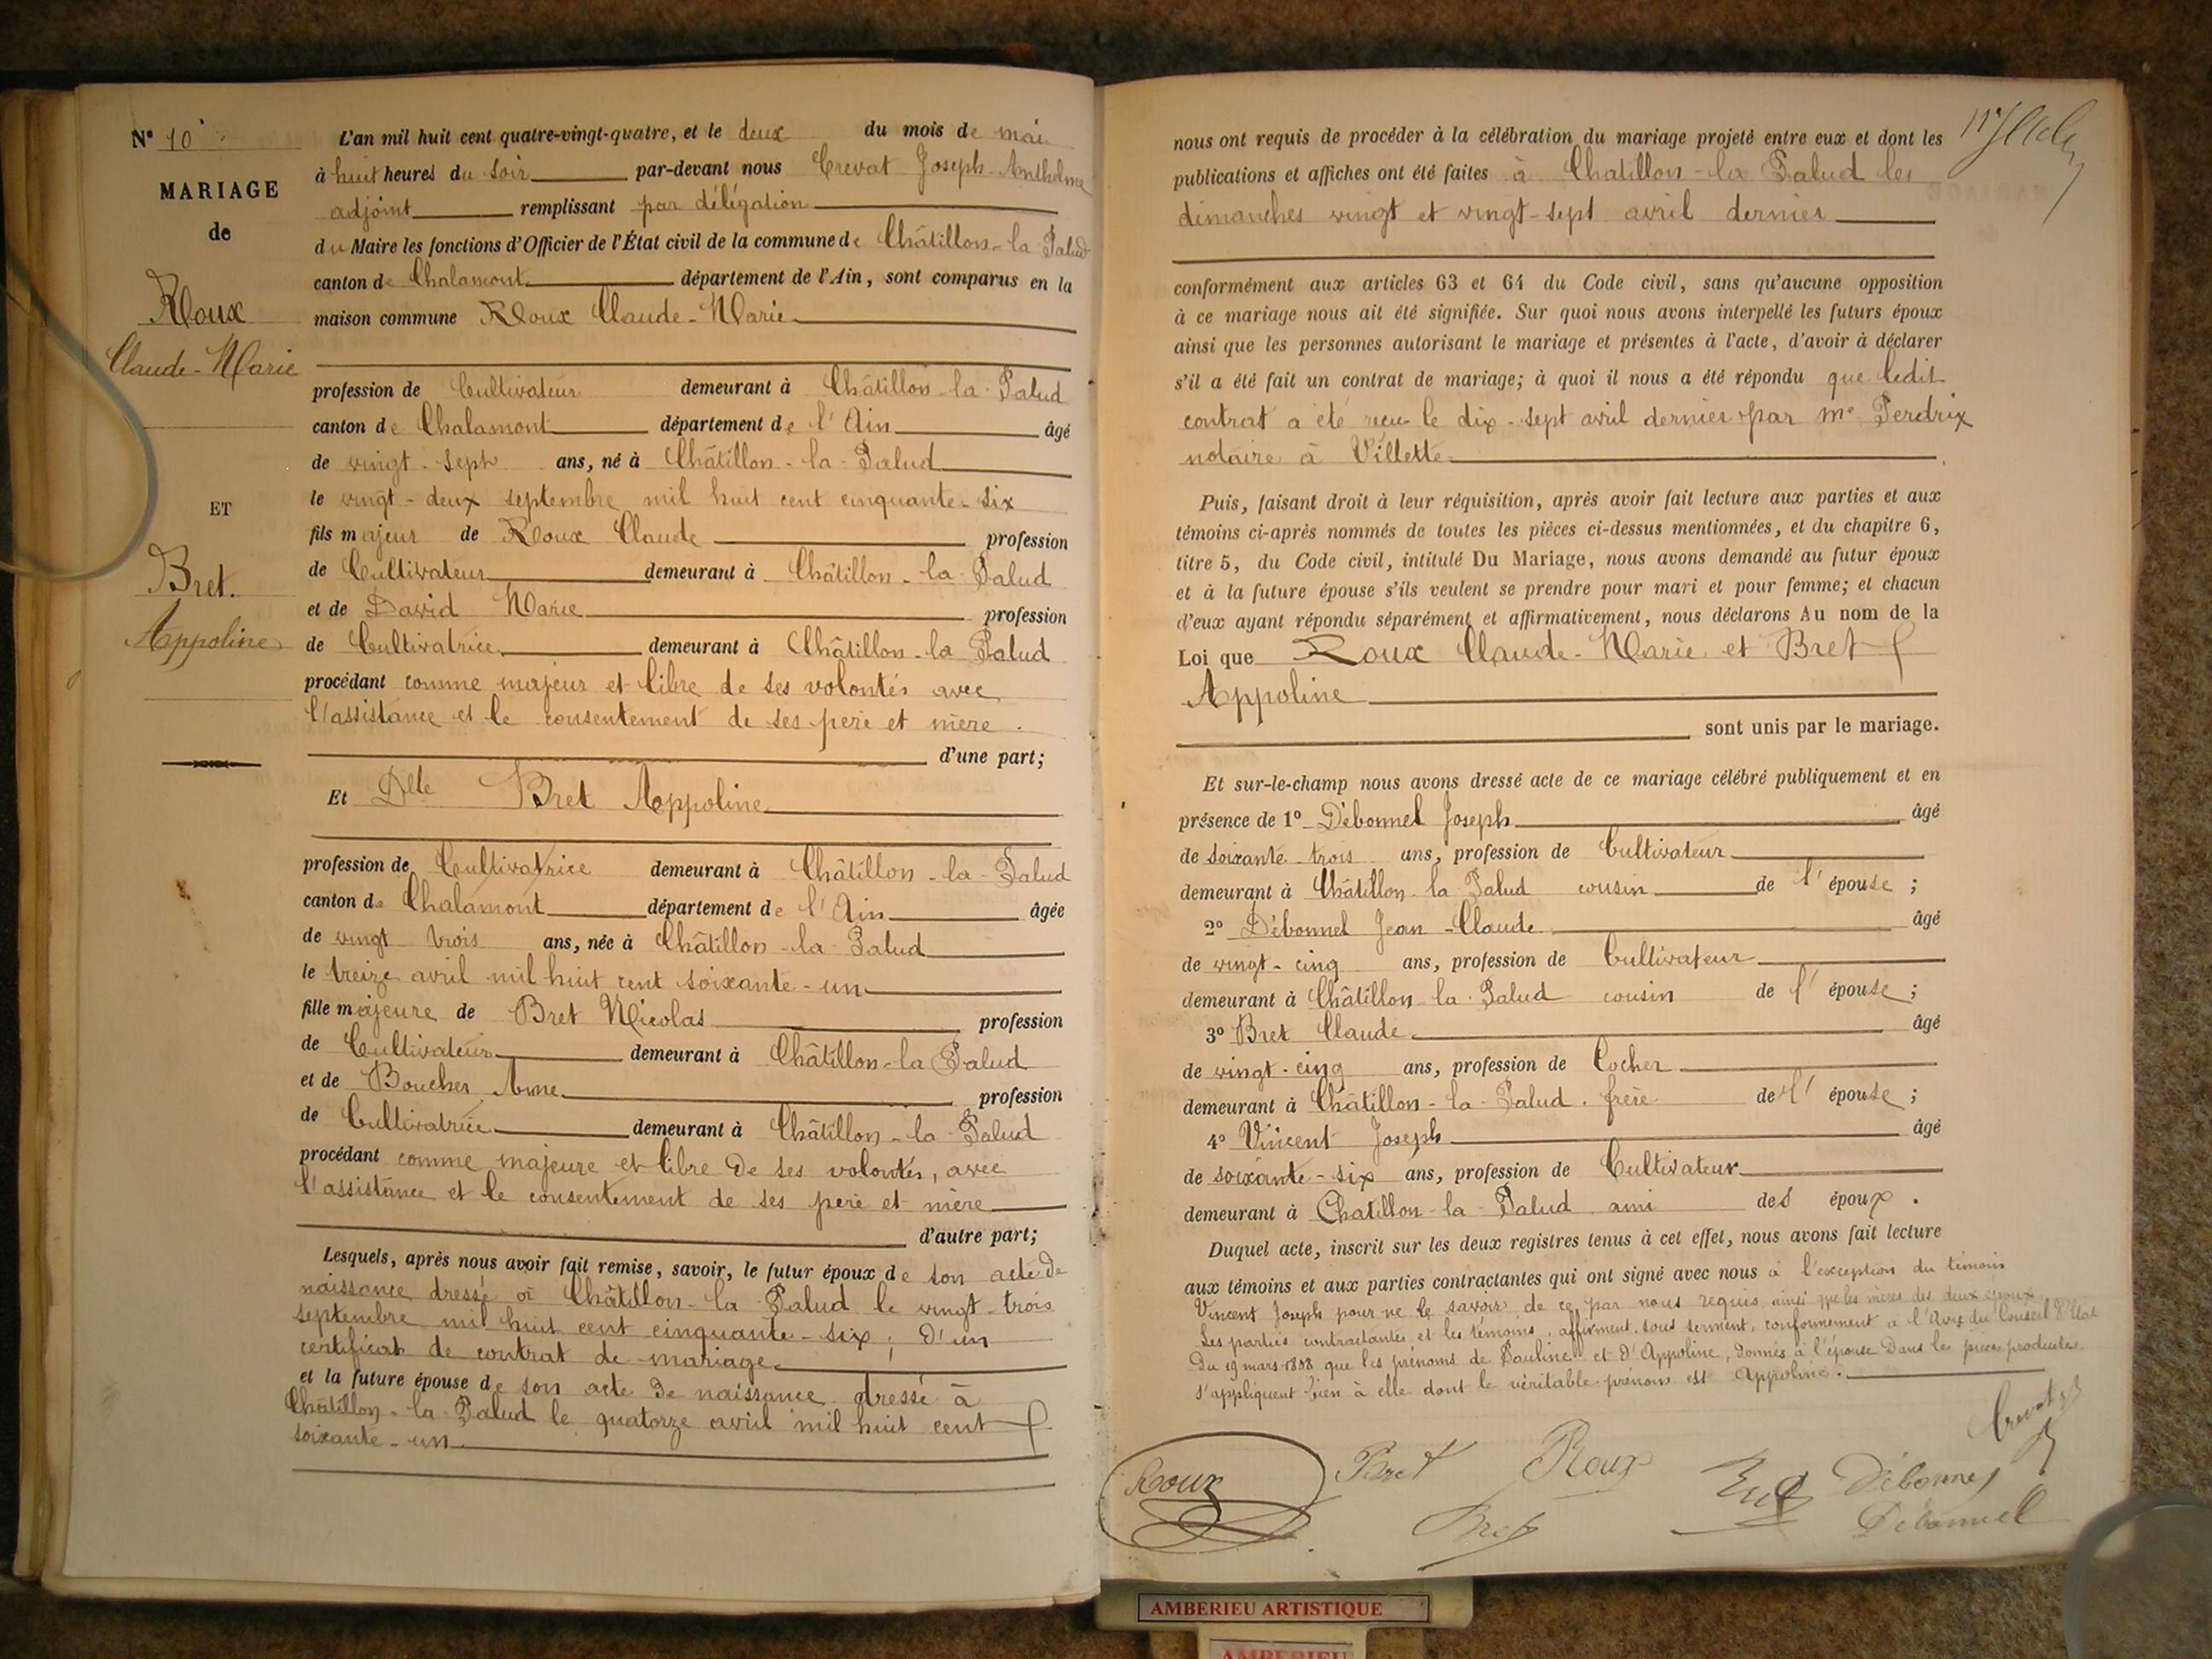 N° 10
MARIAGE
de
Roux
Claude-Marie
ET
Bret
Appoline
L'an mil huit cent quatre-vingt-quatre, et le deux du mois de mai
à huit heures du soir par-devant nous Crevat Joseph-Anthelme
adjoint remplissant par délégation
du Maire les fonctions d'Officier de l'État civil de la commune de Châtillon-la-Palud
canton de Chalamont département de l'Ain, sont comparus en la
maison commune Roux Claude-Marie
profession de Cultivateur demeurant à Châtillon-la-Palud
canton de Chalamont département de l'Ain âgé
de vingt-sept ans, né à Châtillon-la-Palud
le vingt-deux septembre mil huit cent cinquante-six
fils majeur de Roux Claude profession
de Cultivateur demeurant à Châtillon-la-Palud
et de David Marie profession
de Cultivatrice demeurant à Châtillon-la Palud
procédant comme majeur et libre de ses volontés avec
l'assistance et le consentement de ses père et mère.
d'une part;
Et Dlle Bret Appoline
profession de Cultivatrice demeurant à Châtillon-la-Palud
canton de Chalamont département de l'Ain âgée
de vingt trois ans, née à Châtillon-la-Palud
le treize avril mil huit cent soixante-un
fille majeure de Bret Nicolas profession
de Cultivateur demeurant à Châtillon-la Palud
et de Boucher Anne profession
de Cultivatrice demeurant à Châtillon-la-Palud
procédant comme majeure et libre de ses volontés, avec
l'assistance et le consentement de ses père et mère
d'autre part;
Lesquels, après nous avoir fait remise, savoir, le futur époux de son acte de
naissance dressé à Châtillon-la-Palud le vingt-trois
septembre mil huit cent cinquante-six; d'un
certificat de contrat de mariage
et la future épouse de son acte de naissance dressé à
Châtillon-la-Palud le quatorze avril mil huit cent
soixante-un
nous ont requis de procéder à la célébration du mariage projeté entre eux et dont les
publications et affiches ont été faites à Chatillon-la Palud les
dimanches vingt et vingt-sept avril dernier
conformément aux articles 63 et 64 du Code civil, sans qu'aucune opposition
à ce mariage nous ait été signifiée. Sur quoi nous avons interpellé les futurs époux
ainsi que les personnes autorisant le mariage et présentes à l'acte, d'avoir à déclarer
s'il a été fait un contrat de mariage; à quoi il nous a été répondu que ledit
contrat a été reçu le dix-sept avril dernier par Me Perdrix
notaire à Villette
Puis, faisant droit à leur réquisition, après avoir fait lecture aux parties et aux
témoins ci-après nommés de toutes les pièces ci-dessus mentionnées, et du chapitre 6,
titre 5, du Code civil, intitulé Du Mariage, nous avons demandé au futur époux
et à la future épouse s'ils veulent se prendre pour mari et pour femme; et chacun
d'eux ayant répondu séparément et affirmativement, nous déclarons Au nom de la
Loi que Roux Claude-Marie et Bret
Appoline
sont unis par le mariage.
Et sur-le-champ nous avons dressé acte de ce mariage célébré publiquement et en
présence de 1° Débonnel Joseph âgé
de soixante trois ans, profession de Cultivateur
demeurant à Châtillon-la-Palud cousin de l'épouse;
2° Débonnel Jean-Claude âgé
de vingt-cinq ans, profession de Cultivateur
demeurant à Châtillon-la-Palud cousin de l'épouse;
3° Bret Claude âgé
de vingt-cinq ans, profession de Cocher
demeurant à Châtillon-la-Palud. frère de l'épouse;
4° Vincent Joseph âgé
de soixante-six ans, profession de Cultivateur
demeurant à Chatillon-la-Palud ami des époux.
Duquel acte, inscrit sur les deux registres tenus à cet effet, nous avons fait lecture
aux témoins et aux parties contractantes qui ont signé avec nous à l'exception du témoin
Vincent Joseph pour ne le savoir de ce par nous requis ainsi que les mères des deux époux
Les parties contractantes et les témoins, affirment sous serment, conformément à l'Avis du Conseil d'Etat
du 19 mars 1808 que les prénoms de Pauline et d'Appoline, donnés à l'épouse dans les pièces produites.
s'appliquent bien à elle dont le véritable prénom est Appoline.
Crevat
Roux Bret Roux Débonnel
Bret Débonnel
AMBERIEU ARTISTIQUE
AMBERIEU